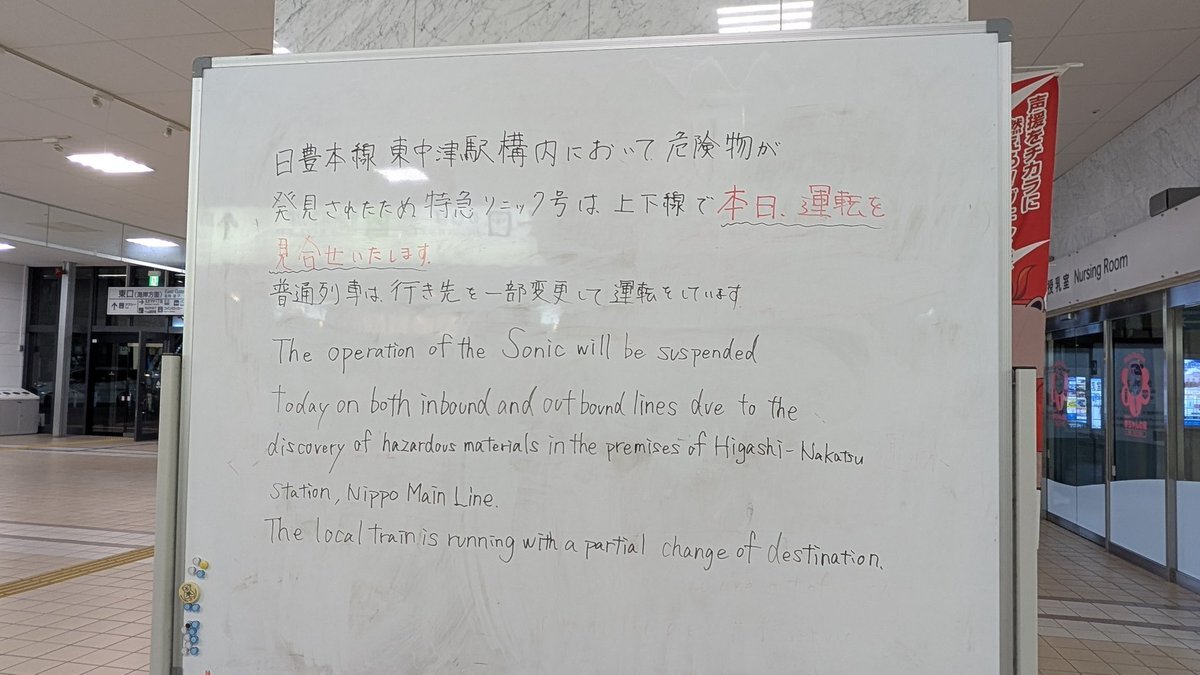 日豊本線 東中津駅構内において危険物が
発見されたため 特急ソニック号は 上下線で本日、運転を
見合せいたします。
普通列車は、行き先を一部変更して運転をしています。
The operation of the Sonic will be suspended
today on both inbound and outbound lines due to the
discovery of hazardous materials in the premises of Higashi-Nakatsu
Station, Nippo Main Line.
The local train is running with a partial change of destination.
声援をチカラに
東口(海岸方面)
授乳室 Nursing Room